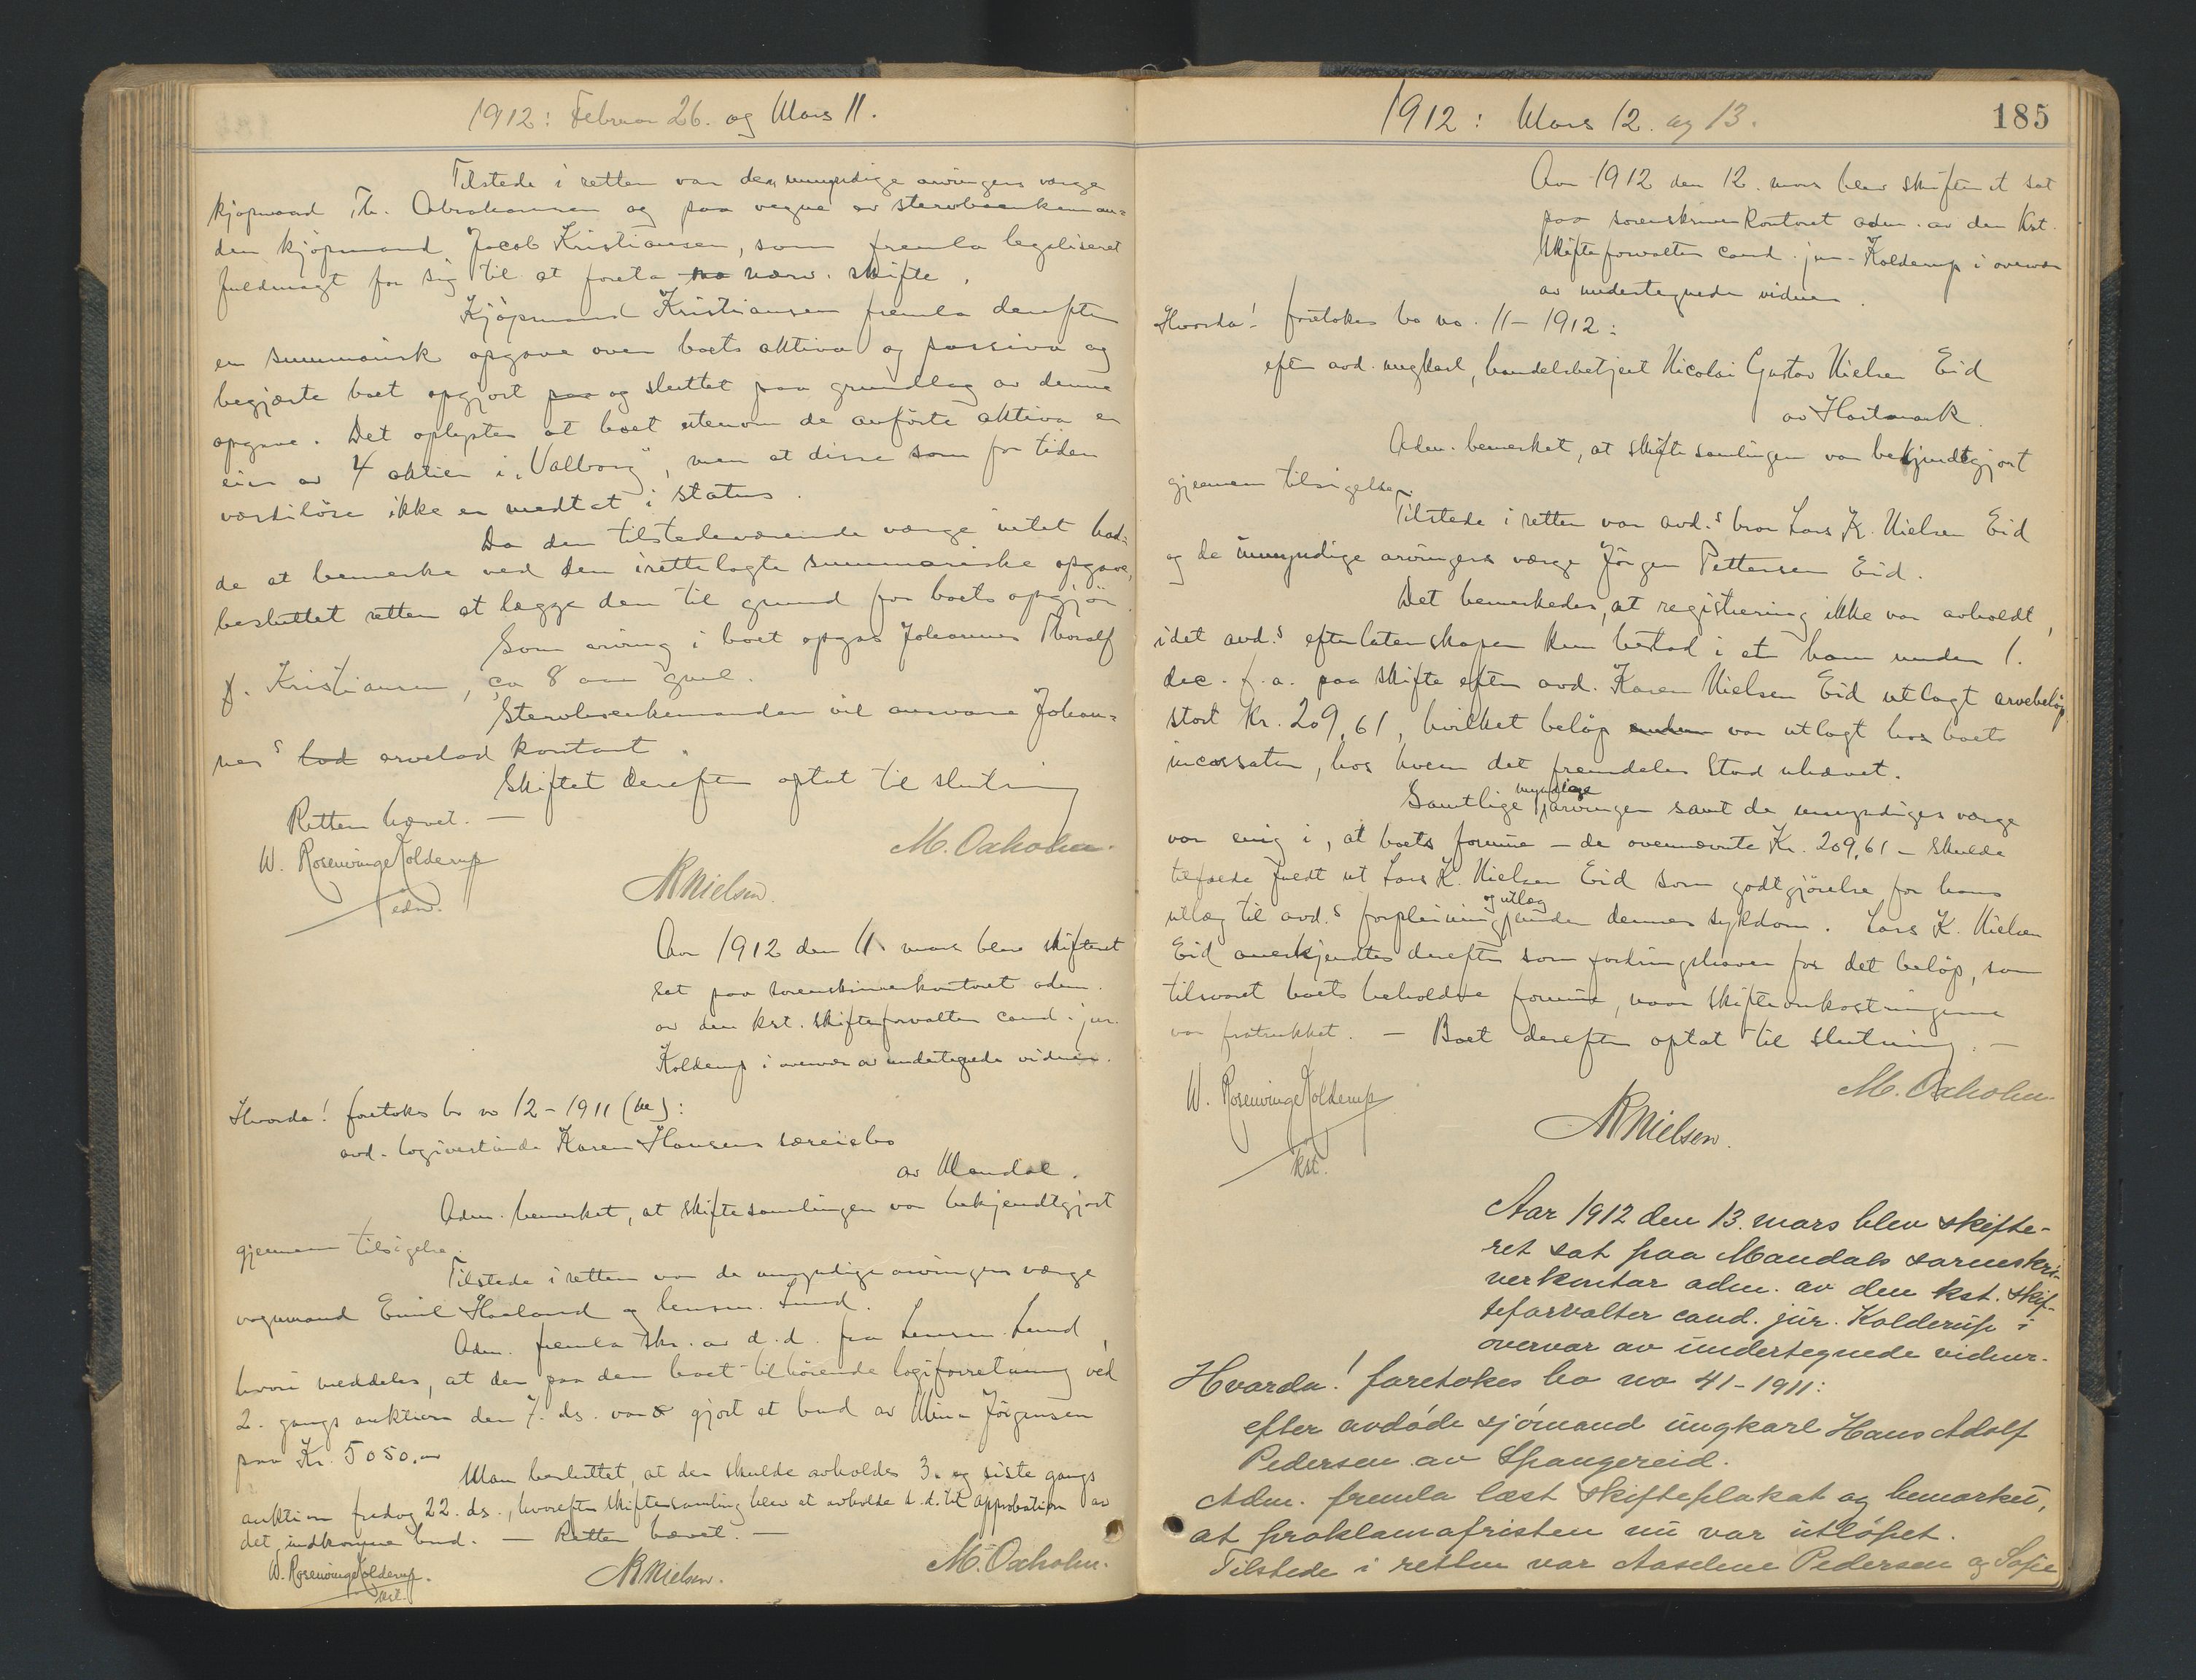 1912: Februar 26. og Mars 11.
Tilstede i retten var den umyndige arvingers værge
kjøpmand Th. Abrahamsen og paa vegne av stervboenkeman-
den kjøpmand Jacob Kristiansen, som fremla legaliseret
fuldmagt for sig til at foreta nærv. skifte.
Kjøpmand Kristiansen fremla derefter
en summarisk opgave over boets aktiva og passiva og
begjærte boet opgjort paa og sluttet paa grundlag av denne
opgave. Det oplystes at boet utenom de anførte aktiva er
eier av 4 aktier i "Valborg", men at disse som for tiden
værdiløse ikke er medtat i status.
Da den tilstedeværende værge intet had-
de at bemerke ved den irettelagte summariske opgave,
besluttet retten at lægge den til grund for boets opgjør
Som arving i boet opgas Johannes Thoralf
J. Kristiansen, ca 8 aar gml.
Stervboenkemanden vil ansvare Johan-
nes's lod arvelod kontant.
Skiftet derefter optat til slutning
Retten hævet. —
W. Rosenvinge Kolderup
edv.
M. Oxholm.
NRNielsen.
Aar 1912 den 11. mars blev skifteret
sat paa sorenskriverkontoret adm.
av den kst. skifteforvalter cand. jur.
Kolderup i overvær av undertegnede vidner.
Hvorda! foretokes bo no 12-1911 (M):
avd. logivertinde Karen Hansens særeiebo
av Mandal.
Adm. bemerket, at skiftesamlingen var bekjendtgjort
gjennem tilsigelse.
Tilstede i retten var de umyndige arvingers værge
vognmand Emil Haaland og lensm. Lund.
Adm. fremla skr. av d.d. fra Lensm. Lund,
hvori meddeles, at der paa den boet tilhørende logiforretning ved
2. gangs auktion den 7. ds. var gjort et bud av Mina Jörgensen
paa Kr. 5050.-
Man besluttet, at der skulde avholdes 3. og siste gangs
auktion fredag 22. ds., hvorefter skiftesamling blev at avholde s.d. til approbation av
det indkomne bud. — Retten hævet. —
W. Rosenvinge Kolderup.
M. Oxholm.
NRNielsen.
1912: Mars 12. og 13.
185
Aar 1912 den 12. mars blev skifteret sat
paa sorenskriverkontoret adm. av den kst.
skifteforvalter cand. jur. Kolderup i overvær
av undertegnede vidner.
Hvorda! foretokes bo no. 11-1912:
efter avd. ungkarl, handelsbetjent Nicolai Gustav Nielsen Eid
av Hartmark.
Adm. bemerket, at skiftesamlingen var bekjendtgjort
gjennem tilsigelse.
Tilstede i retten var avd.s bror Lars K. Nielsen Eid
og de umyndige arvingers værge Jörgen Pettersen Eid.
Det bemerkedes, at registrering ikke var avholdt,
idet avd.s efterlatenskaper kun bestod i et ham under 1.
dec. f.a. paa skifte efter avd. Karen Nielsen Eid utlagt arvebeløp
stort Kr. 209,61, hvilket beløp var utlagt hos boets
incassator, hos hvem det fremdeles stod uhævet.
Samtlige myndige arvinger samt de umyndiges værge
var enig i, at boets formue — de ovennævnte Kr. 209,61 — skulde
tilfalde fuldt ut Lars K. Nielsen Eid som godtgjørelse for hans
utlæg til avd.s forpleining og utlæg under dennes sykdom. Lars K. Nielsen
Eid anerkjendtes derefter som fordringshaver for det beløp, som
tilsvaret boets beholdne formue, naar skifteomkostningerne
var fratrukket. — Boet derefter optat til slutning. —
W. Rosenvinge Kolderup
kst.
M. Oxholm.
NRNielsen.
Aar 1912 den 13. mars blev skifte-
ret sat paa Mandals sorenskri-
verkontor adm. av den kst. skif-
teforvalter cand. jur. Kolderup i
overvær av undertegnede vidner.
Hvorda! foretokes bo no 41-1911:
efter avdøde sjömand ungkarl Hans Adolf
Pedersen av Spangereid.
Adm. fremla læst skifteplakat og bemerket,
at proklamafristen nu var utløpet.
Tilstede i retten var Aaselene Pedersen og Sofie